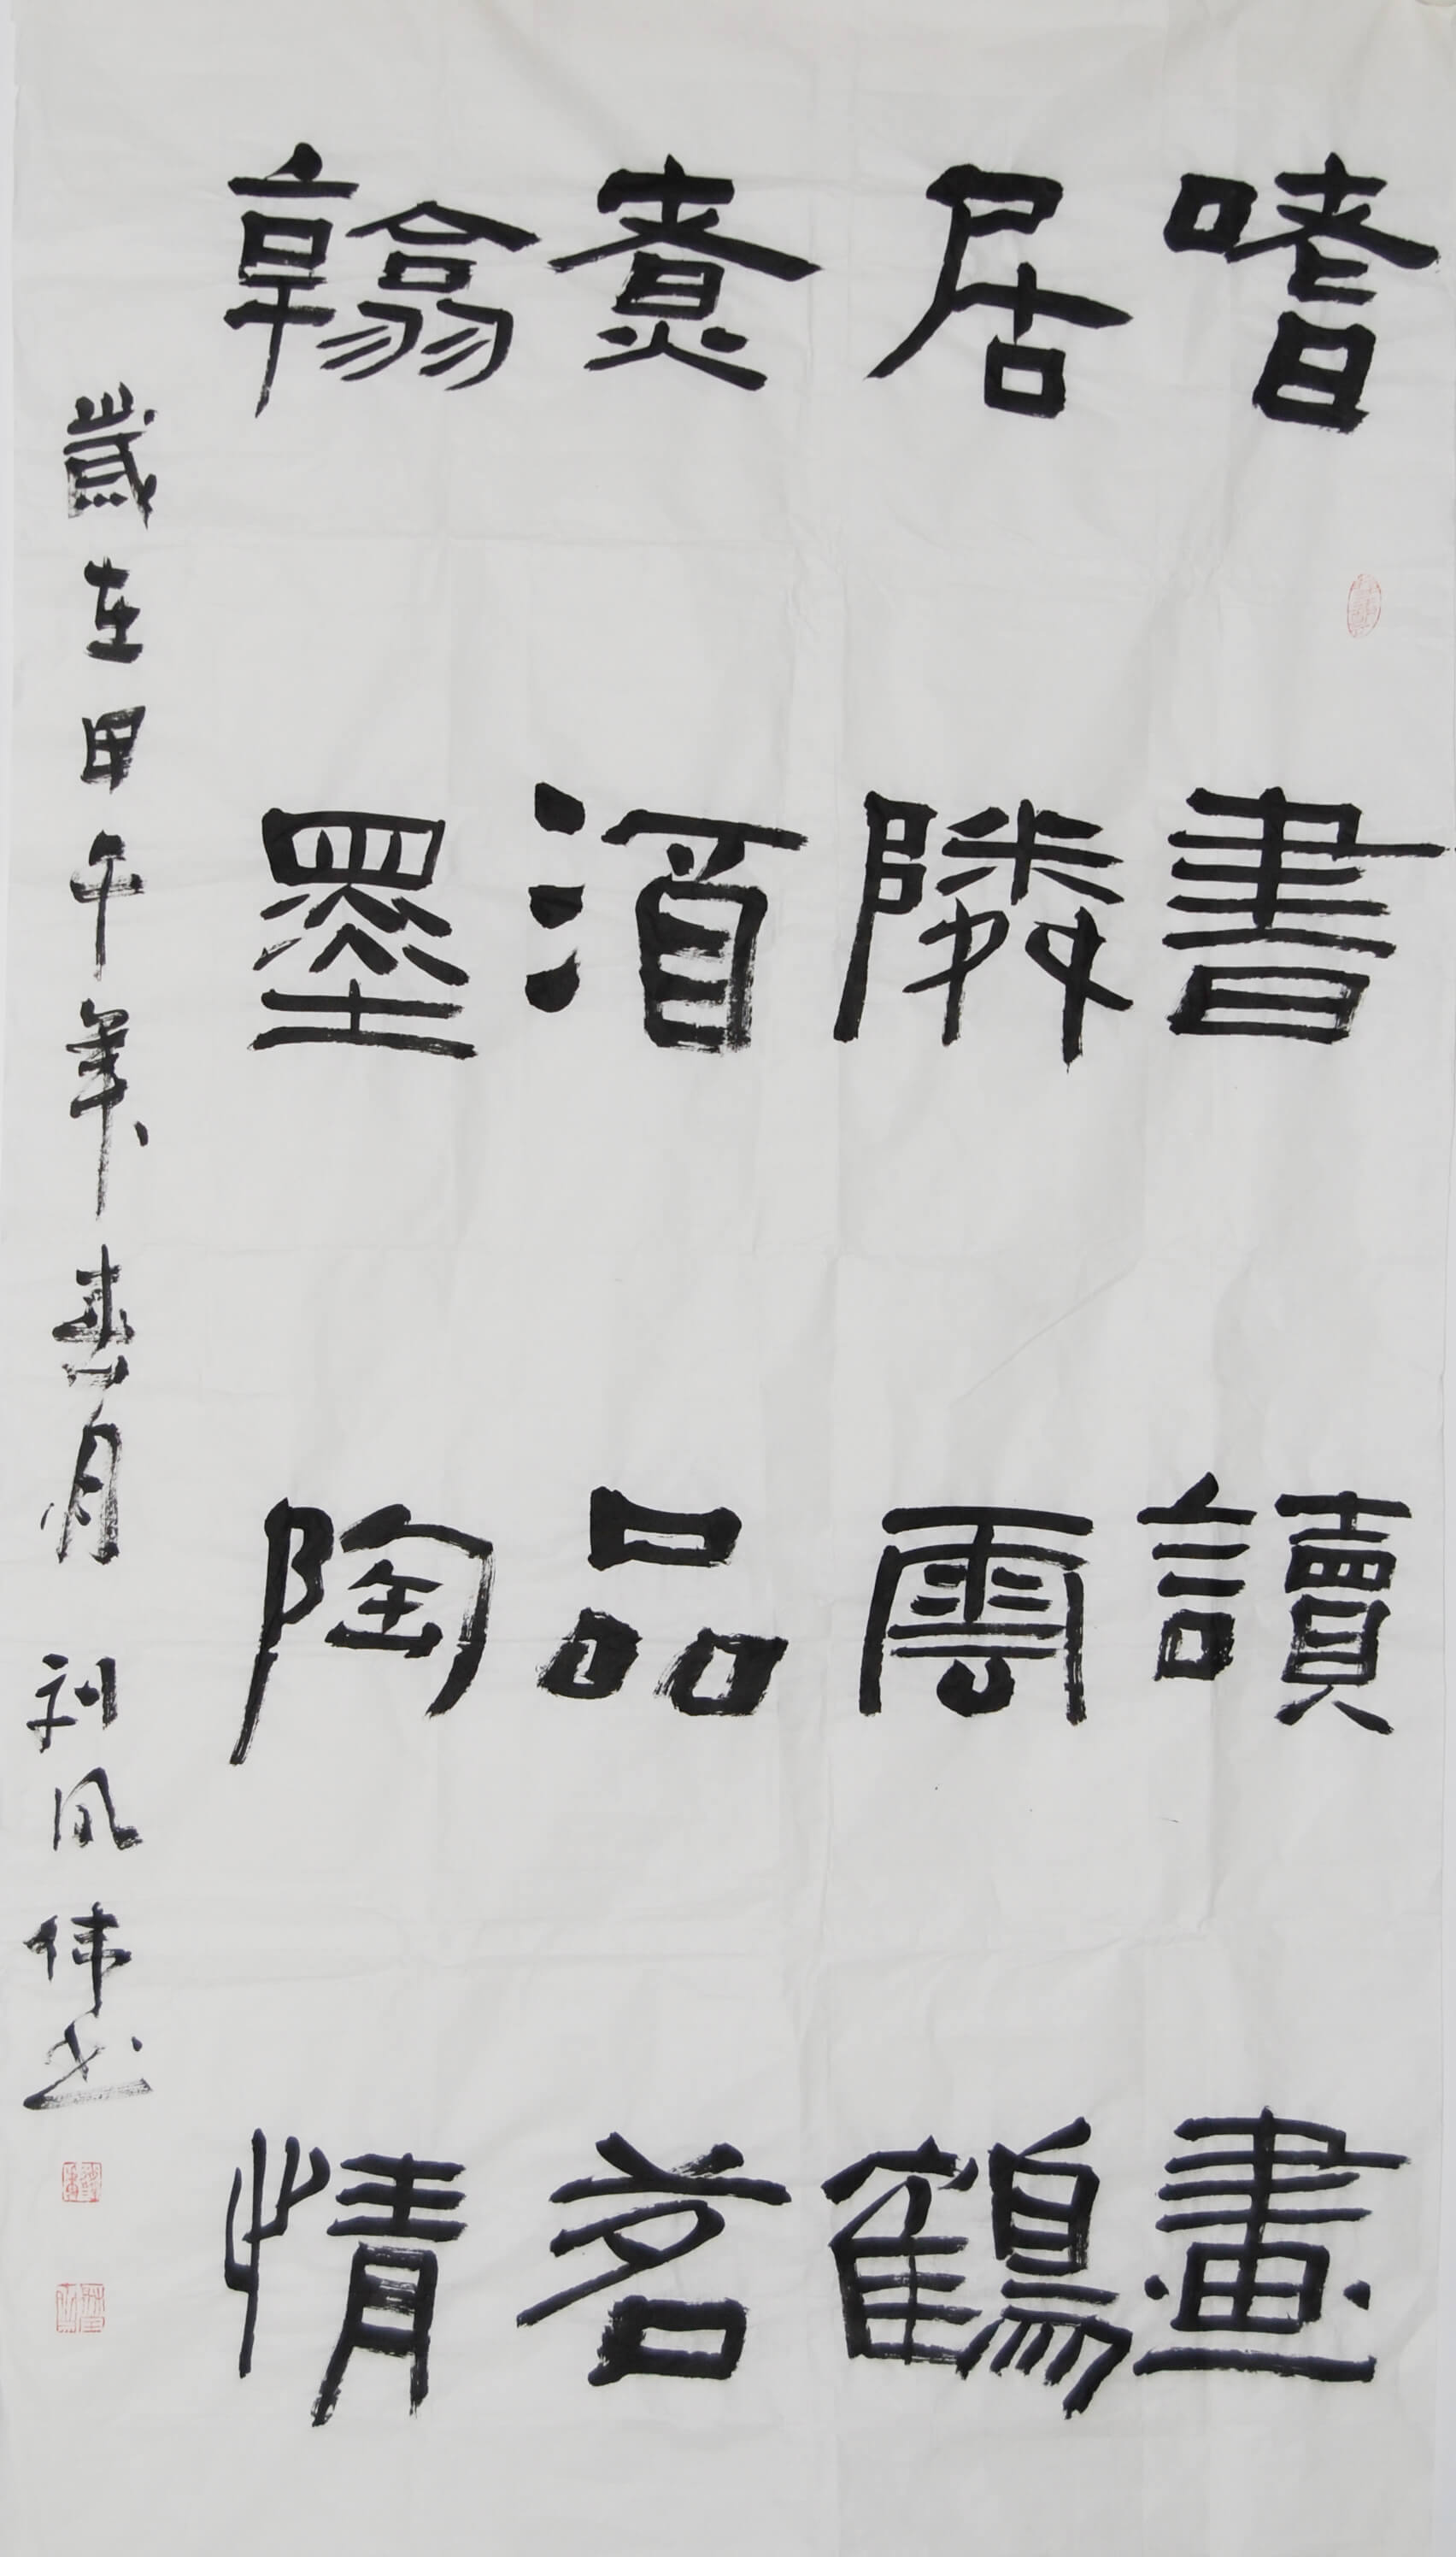 嗜書讀畫
居隣雲鶴
煑酒品茗
翰墨陶情
歲在甲午年春月 利風伟书